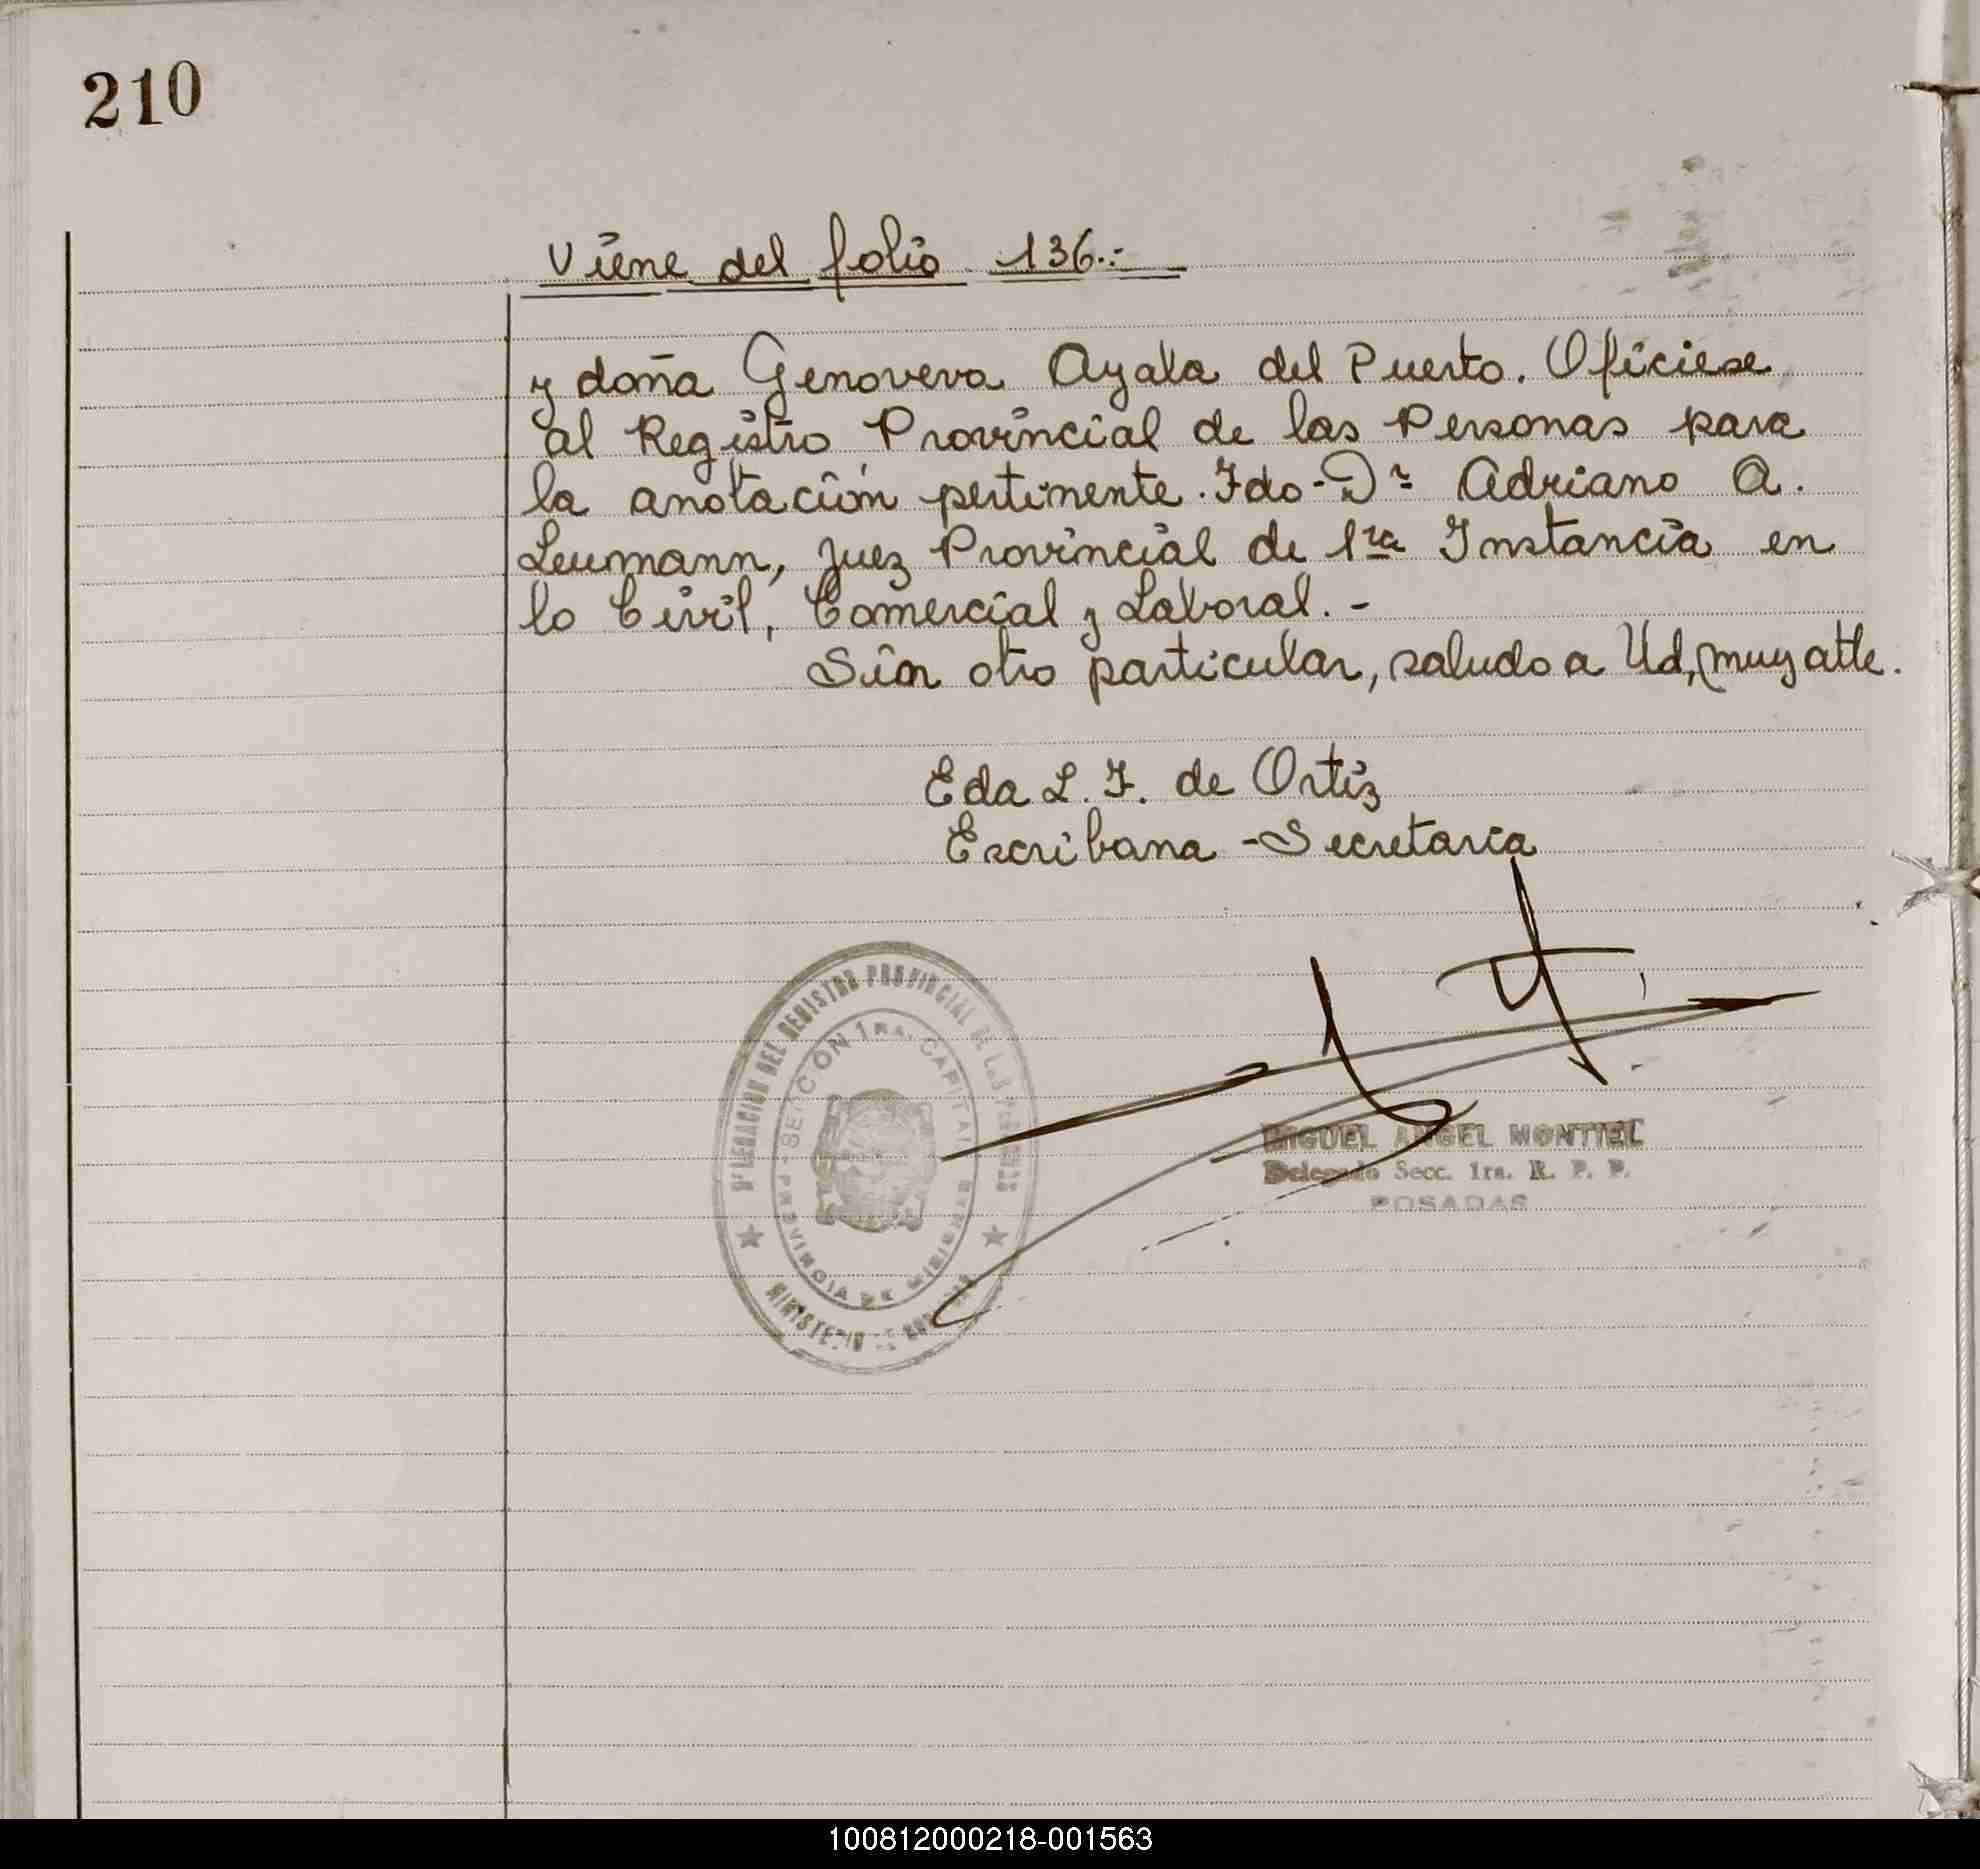 210
Viene del folio 136.-
y doña Genoveva Ayala del Puerto. Ofíciese
al Registro Provincial de las Personas para
la anotación pertinente. Fdo- Dr Adriano A.
Leumann, juez Provincial de 1ra Instancia en
lo Civil, Comercial y Laboral.-
Sin otro particular, saludo a Ud, muy atte.
Eda L. F. de Ortiz
Escribana - Secretaria
DELEGACION DEL REGISTRO PROVINCIAL DE LAS PERSONAS
SECCION 1RA. CAPITAL
PROVINCIA DE MISIONES
MINISTERIO
MIGUEL ANGEL MONTIEL
Delegado Secc. 1ra. R. P. P.
POSADAS
100812000218-001563